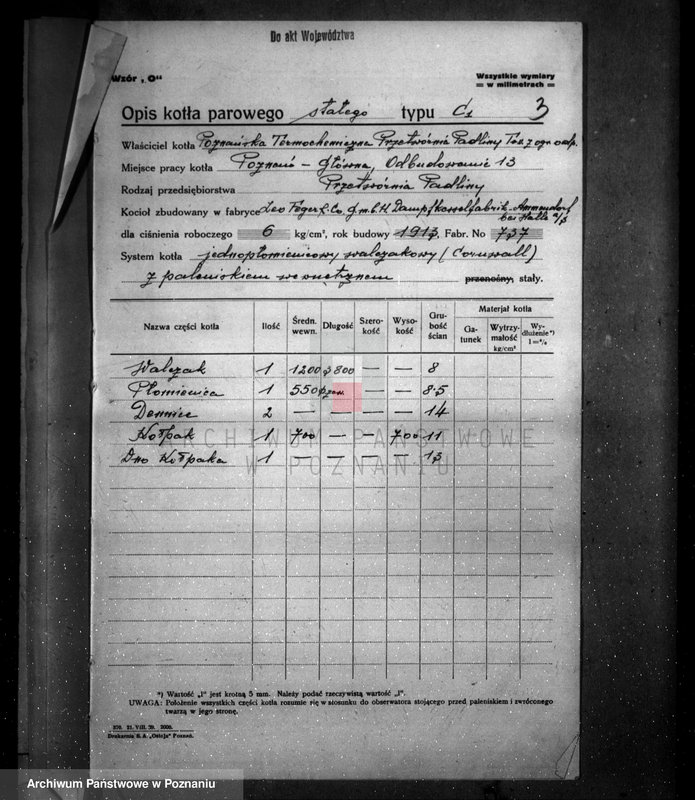 Do akt Województwa
Wzór „O“
Wszystkie wymiary
w milimetrach
Opis kotła parowego stałego typu C1 3
Właściciel kotła Poznańska Termochemiczna Przetwórnia Padliny Tow. z ogr. odp.
Miejsce pracy kotła Poznań - Główna, Odbudowanie 13
Rodzaj przedsiębiorstwa Przetwórnia Padliny
Kocioł zbudowany w fabryce Leo Feger & Co. G.m.b.H. Dampfkesselfabrik - Ammendorf
bei Halle a/S
dla ciśnienia roboczego 6 kg/cm², rok budowy 1913, Fabr. No 737
System kotła jednopłomienicowy walczakowy (Cornwall)
z paleniskiem wewnętrznem przenośny, stały.
Nazwa części kotła Ilość Średn. wewn. Długość Szerokość Wysokość Grubość ścian Materjał kotła
Gatunek Wytrzymałość kg/cm² Wydłużenie*) l=%
Walczak 1 1200 3800 — — 8
Płomienica 1 550 — — 8·5
Dennice 2 — — — — 14
Kołpak 1 700 — — 700 11
Dno Kołpaka 1 — — — — 13
ARCHIWUM PAŃSTWOWE
W POZNANIU
*) Wartość „l“ jest krotną 5 mm. Należy podać rzeczywistą wartość „l“.
UWAGA: Położenie wszystkich części kotła rozumie się w stosunku do obserwatora stojącego przed paleniskiem i zwróconego
twarzą w jego stronę.
Drukarnia S. A. „Ostoja“ Poznań.
Archiwum Państwowe w Poznaniu